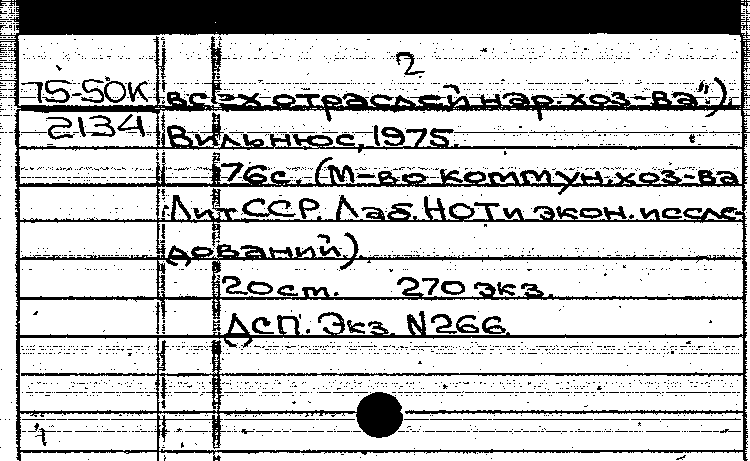 2
75-50К всех отраслей нар. хоз-ва").
2134 Вильнюс, 1975.
76с. (М-во коммун. хоз-ва
ЛитССР. Лаб. НОТ и экон. иссле-
дований.)
20см. 270 экз.
ДСП. Экз. N266.